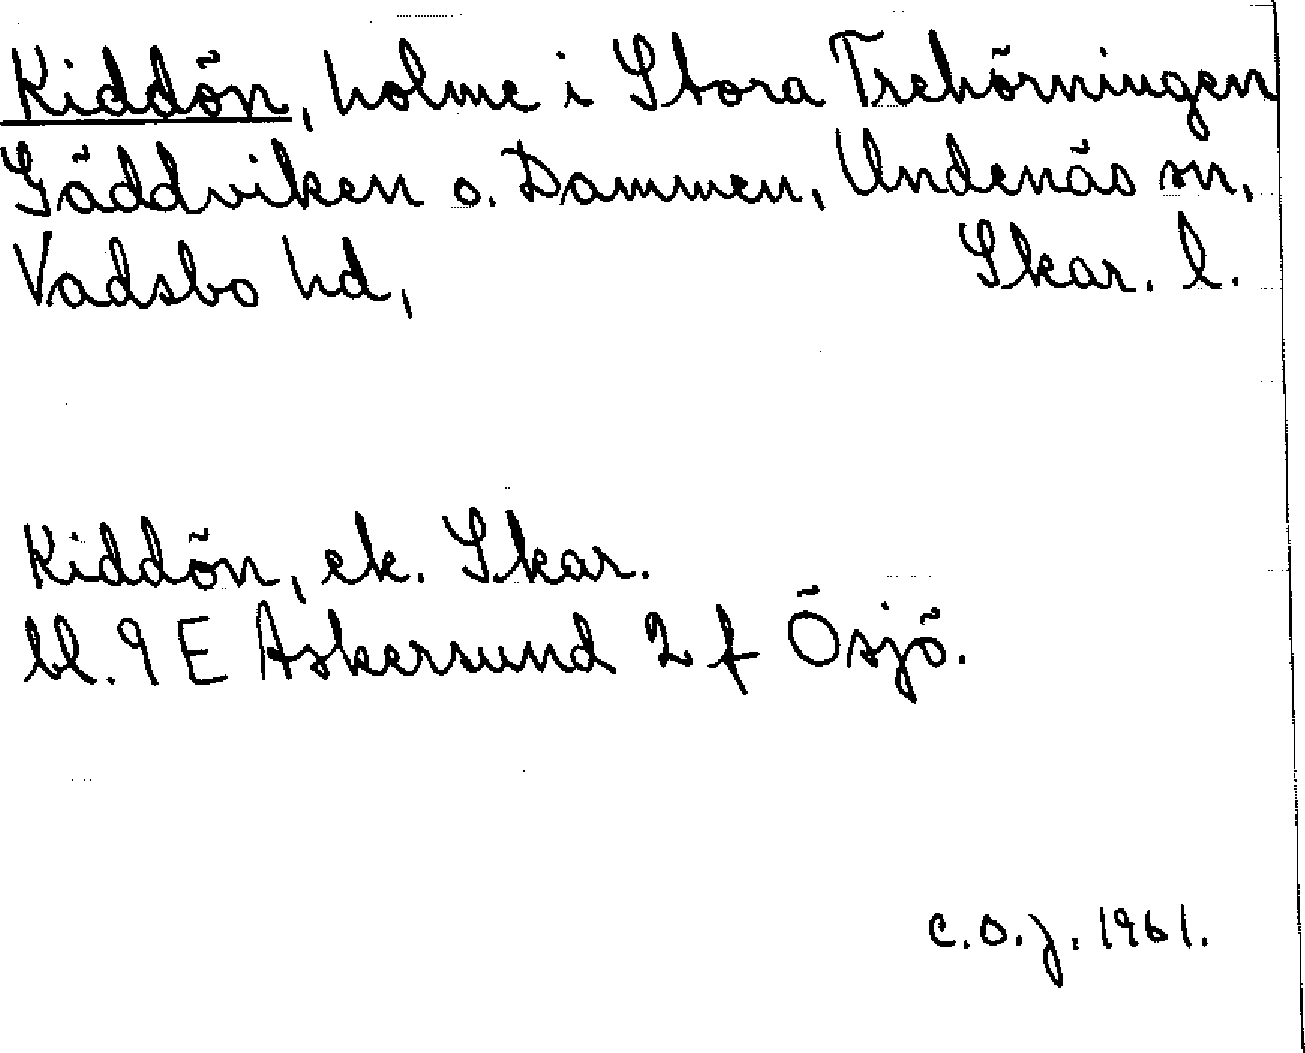 Kiddön, holme i Stora Trehörningen
Gäddviken o. Dammen, Undenäs sn,
Vadsbo hd, Skar. l.
Kiddön, ek. Skar.
bl. 9 E Askersund 2 f Ösjö.
C.O.J. 1961.